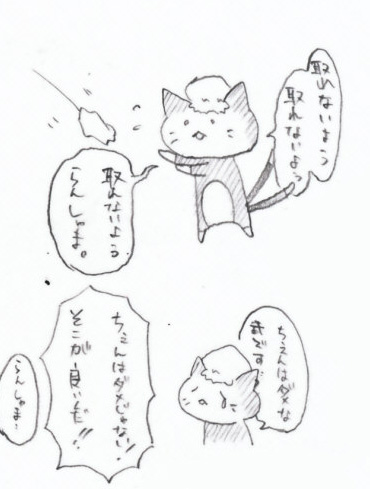 取れないよう
取れないよう
取れないよう
らんしゃま。
ちぇんはダメな
式です…
ちぇんはダメじゃない!!
そこが良いんだ!!
らんしゃま…